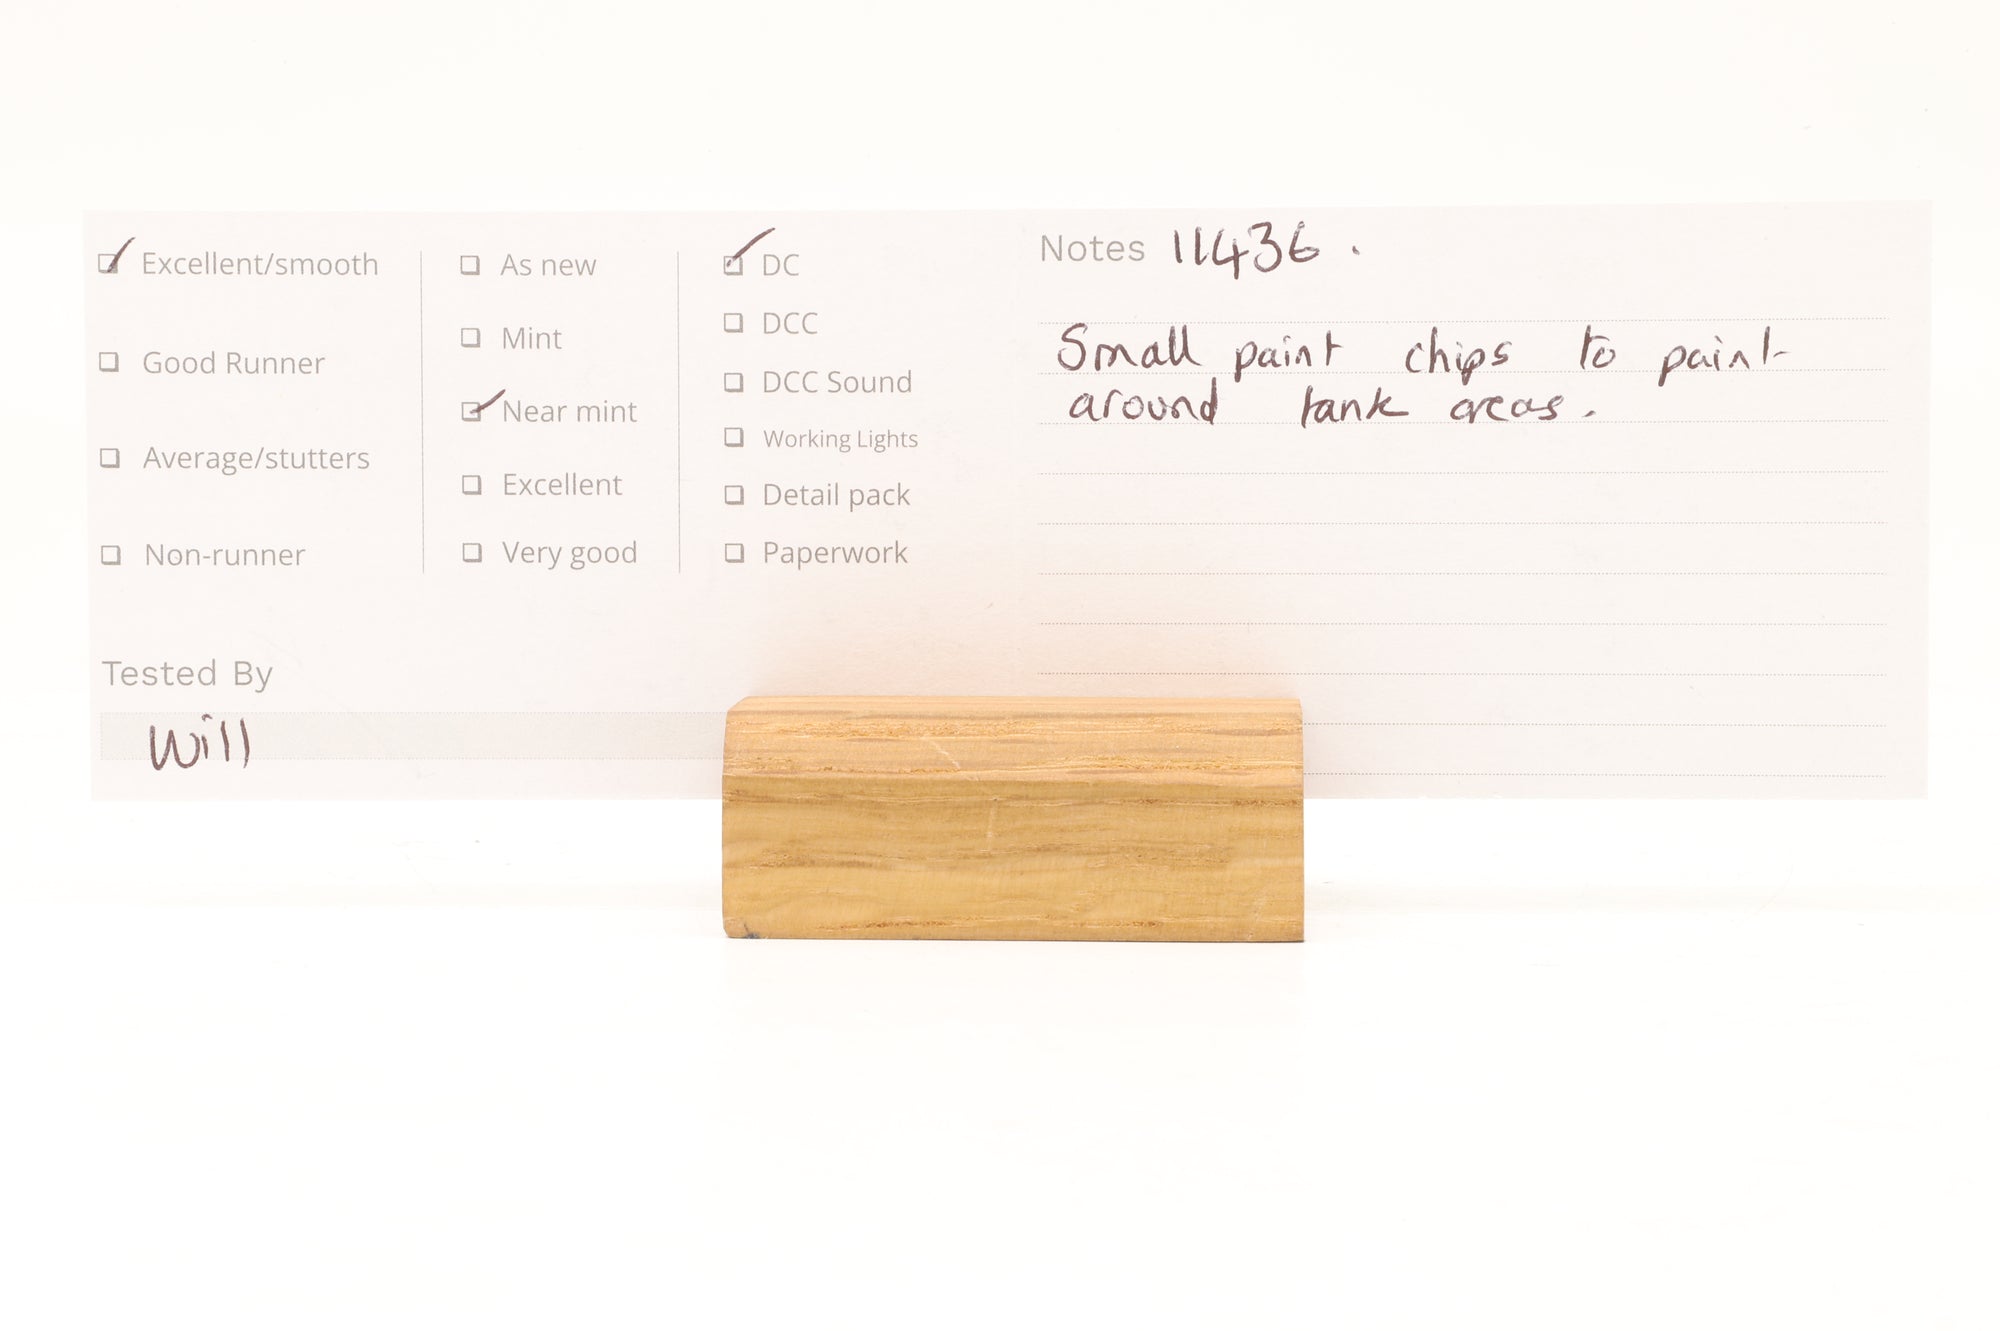 Excellent/smooth
Good Runner
Average/stutters
Non-runner
As new
Mint
Near mint
Excellent
Very good
DC
DCC
DCC Sound
Working Lights
Detail pack
Paperwork
Tested By
Will
Notes 11436.
Small paint chips to paint
around tank areas.